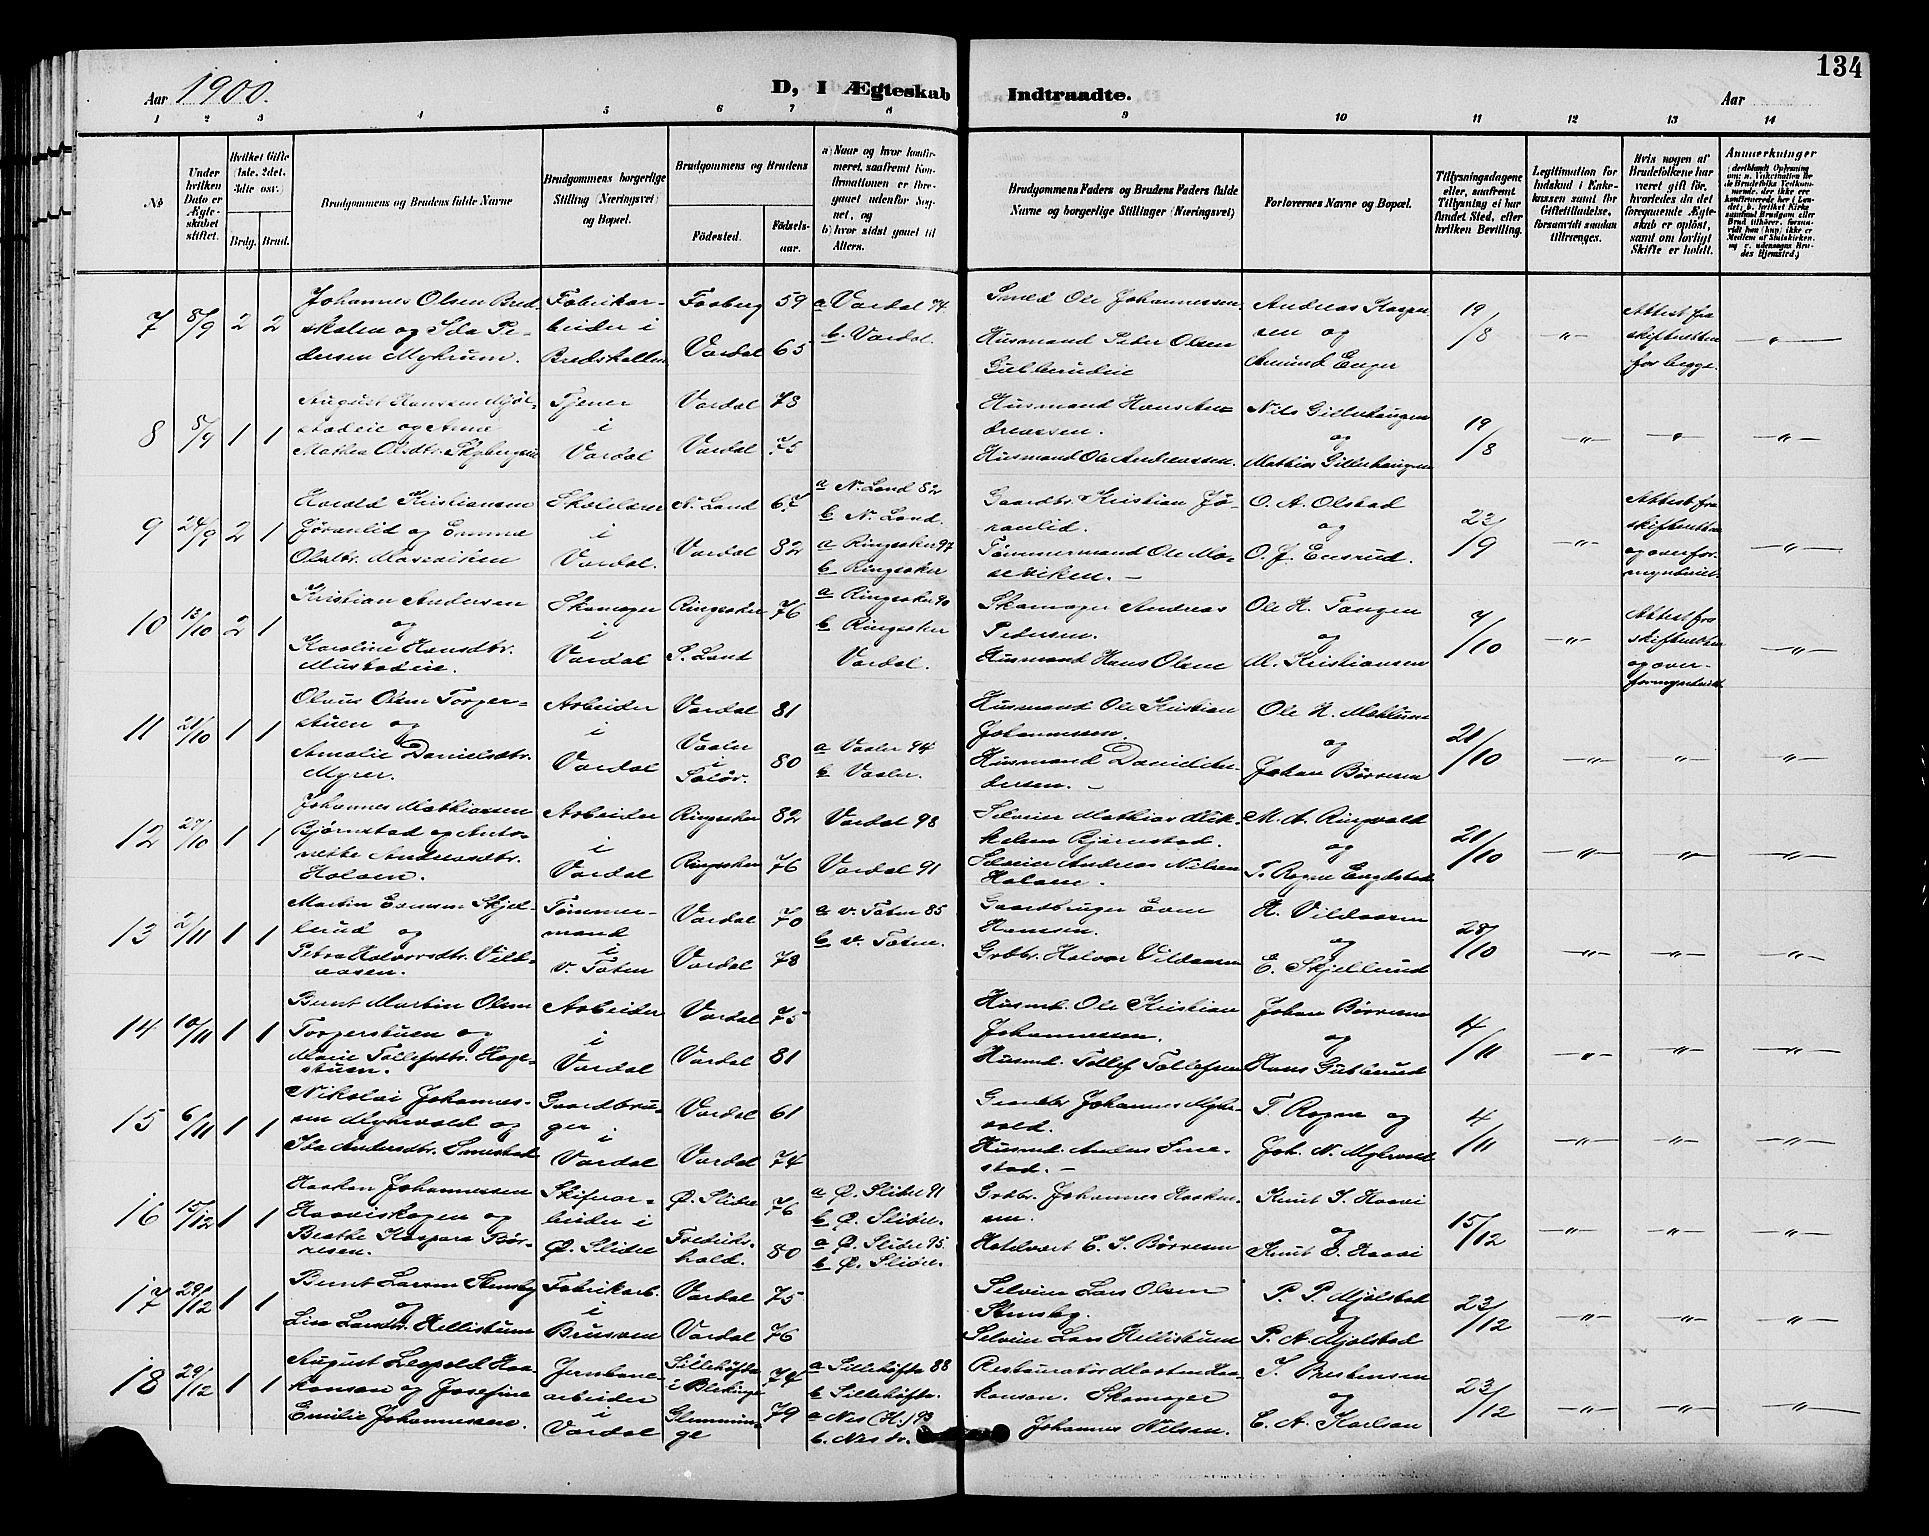 134
Aar 1900.
D, I Ægteskab Indtraadte.
Aar
1 2 3 4 5 6 7 8 9 10 11 12 13 14
No
Under hvilken Dato er Ægteskabet stiftet.
Hvilket Gifte (1ste. 2det. 3die osv.)
Brdg. Brud.
Brudgommens og Brudens fulde Navne
Brudgommens borgerlige Stilling (Næringsvei) og Bopæl.
Brudgommens og Brudens
Fødested.
Fødselsaar.
a) Naar og hvor konfirmeret, saafremt Konfirmationen er foregaaet udenfor Sognet, og
b) hvor sidst gaaet til Alters.
Brudgommens Faders og Brudens Faders fulde Navne og borgerlige Stillinger (Næringsvei)
Forlovernes Navne og Bopæl.
Tillysningsdagene eller, saafremt Tillysning ei har fundet Sted, efter hvilken Bevilling.
Legitimation for Indskud i Enkekassen samt for Giftetilladelse, forsaavidt saadan tiltrænges.
Hvis nogen af Brudefolkene har været gift før, hvorledes da det foregaaende Ægteskab er opløst, samt om lovligt Skifte er holdt.
Anmerkninger
7 8/9 2 2 Johannes Olsen Bredskalen og Ida Pedersen Myhrum. Fabrikarbeider i Bredskallen Faaberg 59 Vardal 65 a Vardal 74. b. Vardal. Smed Ole Johannessen. Husmand Peder Olsen Andreas Kaspersen og Amund Enger 19/8 -"- Attest fra skifteretten for begge. -"-
8 8/9 1 1 August Hanssen og Anne Mathea Olsdtr. Tjener i Vardal Vardal 73 Vardal 75 Husmand Hans Andreassen. Husmand Ole Andreassen. Nils Gillerhaugen og Mathias Gillerhaugen 19/8 -"- -"- -"-
9 24/9 2 1 Harald Kristiansen Jøranlid og Emma Olsdtr. Maseviken Skolelærer i Vardal. N. Land 67 Vardal 82 a N. Land 82 b N. Land. a Ringsaker 97 b Ringsaker Gaardbr. Kristian Jøranlid. Tømmermand Ole Maseviken. - O. A. Olstad og O. J. Ensrud. 23/9 -"- Attest fra skifteretten og overformynderiet. -"-
10 13/10 2 1 Kristian Andersen og Karoline Hansdtr. Mustadeie. Skomager i Vardal Ringsaker 76 S. Land a Ringsaker 90 b Ringsaker Vardal. Skomager Andreas Pedersen. Husmand Hans Olsen Ole H. Tangen og M. Kristiansen 7/10 -"- Attest fra skifteretten og overformynderiet -"-
11 21/10 1 1 Olaus Olsen Torgerstuen og Amalie Danielsdtr. Myrer. Arbeider i Vardal Vardal 81 Vaaler i Solør. 80 a Vaaler 94 b Vaaler. Husmand Ole Kristian Johannessen. Husmand Daniel Andersen. - Ole H. og Johan Børresen 21/10 -"- -"- -"-
12 27/10 1 1 Johannes Mathiassen Bjørnstad og Antonette Andreasdtr. Holsen. Arbeider i Vardal Ringsaker 82 Ringsaker 76 Vardal 98 Vardal 91 Selveier Mathias Mikkelsen Bjørnstad. Selveier Andreas Nilsen M. A. Ringvold og T. Rogne Engdstad 21/10 -"- -"- -"-
13 2/11 1 1 Martin Evensen Skjellerud og Petra Halvorsdtr. Vildaasen. Tømmermand i V. Toten Vardal 70 Vardal 78 a v. Toten 85 b v. Toten. Gaardbruger Even Hansen. Grbbr. Halvor Vildaasen H. Vildaasen og E. Skjellerud 28/10 -"- -"- -"-
14 10/11 1 1 Bernt Martin Olsen Torgerstuen og Marie Tollefsdtr. Hagestuen. Arbeider i Vardal Vardal 75 Vardal 81 Husmd. Ole Kristian Johannessen. Husmd. Tollef Tollefsen Johan Børresen og Hans 4/11 -"- -"- -"-
15 6/11 1 1 Nikolai Johannessen Myhrvold og Ida Andersdtr. Smestad Gaardbruger i Vardal Vardal 61 Vardal 74 Gaardbr Johannes Myhrvold. Husmd. Anders Smestad. - T. Rogne og Joh. N. Myhrvold 4/11 -"- -"- -"-
16 15/12 1 1 Haakon Johannessen Haaviskogen og Beathe Kaspara Børresen. Skifuarbeider i Ø. Slidre Ø. Slidre 76 Fredrikshald. 80 a Ø. Slidre 91 b Ø. Slidre. a Ø. Slidre 95. b Ø. Slidre. Grbbr. Johannes Haakensen. Hotelvært E. S. Børresen Knut S. Haavi og Knut E. Haavi 15/12 -"- -"- -"-
17 29/12 1 1 Bernt Larsen Stensby og Lise Larsdtr. Hellistuen Fabrikarb. i Brusveen Vardal 75 Vardal 76 Selveier Lars Olsen Stensby. Selveier Lars Hellistuen P. P. Mjølstad og P. A. Mjølstad 23/12 -"- -"- -"-
18 29/12 1 1 August Leopold Haakonson og Josefine Emilie Johannessen. Jernbanearbeider i Vardal Sillehöfta i Blekinge 74 Glemminge 79 a Sillehöfta 88 b Sillehöfta. a Nes (H.) 93 b. Nes Restauratør Morten Haakonson. Skomager Johannes Nilsen. I. Brestensen og C. A. Karlson 23/12 -"- -"- -"-